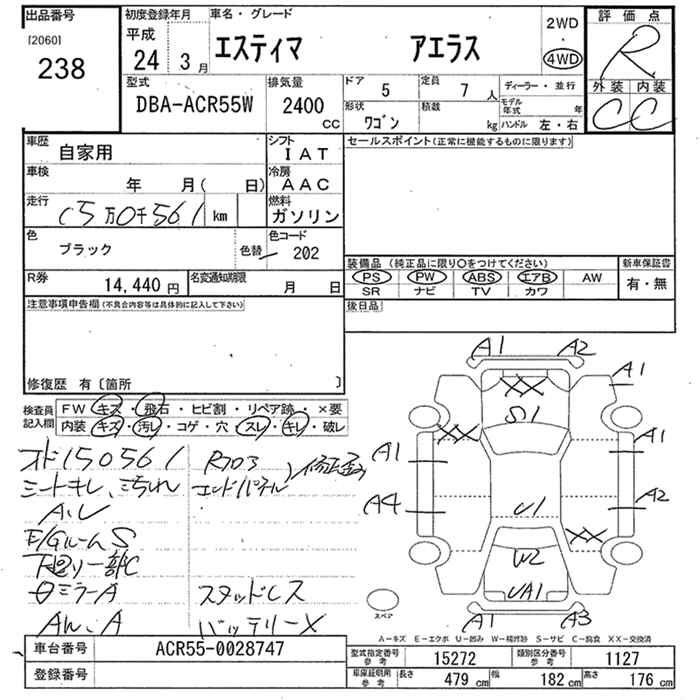 出品番号
[2060]
238
初度登録年月
平成
24 3月
車名・グレード
エスティマ アエラス
2WD
・
4WD
評価点
R
外装 内装
C C
型式
DBA-ACR55W
排気量
2400
CC
ドア 5
定員 7人
形状 ワゴン
積載 kg
ディーラー・並行
モデル年式 年
ハンドル 左・右
車歴 自家用
車検 年 月( 日)
走行 15万0千561 km
色 ブラック
色替
シフト IAT
冷房 AAC
燃料 ガソリン
色コード 202
R券 14,440円
名変通知期限 月 日
セールスポイント(正常に機能するものに限ります)
装備品(純正品に限り○をつけてください)
PS PW ABS エアB AW
SR ナビ TV カワ
新車保証書
有・無
後日品
注意事項申告欄(不具合内容等は具体的に記入して下さい)
修復歴 有〔箇所 〕
検査員記入欄
FW キズ・飛石・ヒビ割・リペア跡・×要
内装 キズ・汚レ・コゲ・穴・スレ・キレ・破レ
オド150561
シートキレ
Aルレ
E/GルームS
下廻り一部C
ミラーA
AW.A
エンドパネル
修正済み
スタッドレス
バッテリーX
A1 A2
XX
S1
A1
XX
A1
A1
A4
U1
A2
XX
W2
UA1
A1 A3
スペア
A-キズ E-エクボ U-凹み W-補修跡 S-サビ C-腐食 XX-交換済
車台番号 ACR55-0028747
登録番号
型式指定番号 参考 15272
類別区分番号 参考 1127
車庫証明用 参考 長さ 479cm 幅 182cm 高さ 176cm